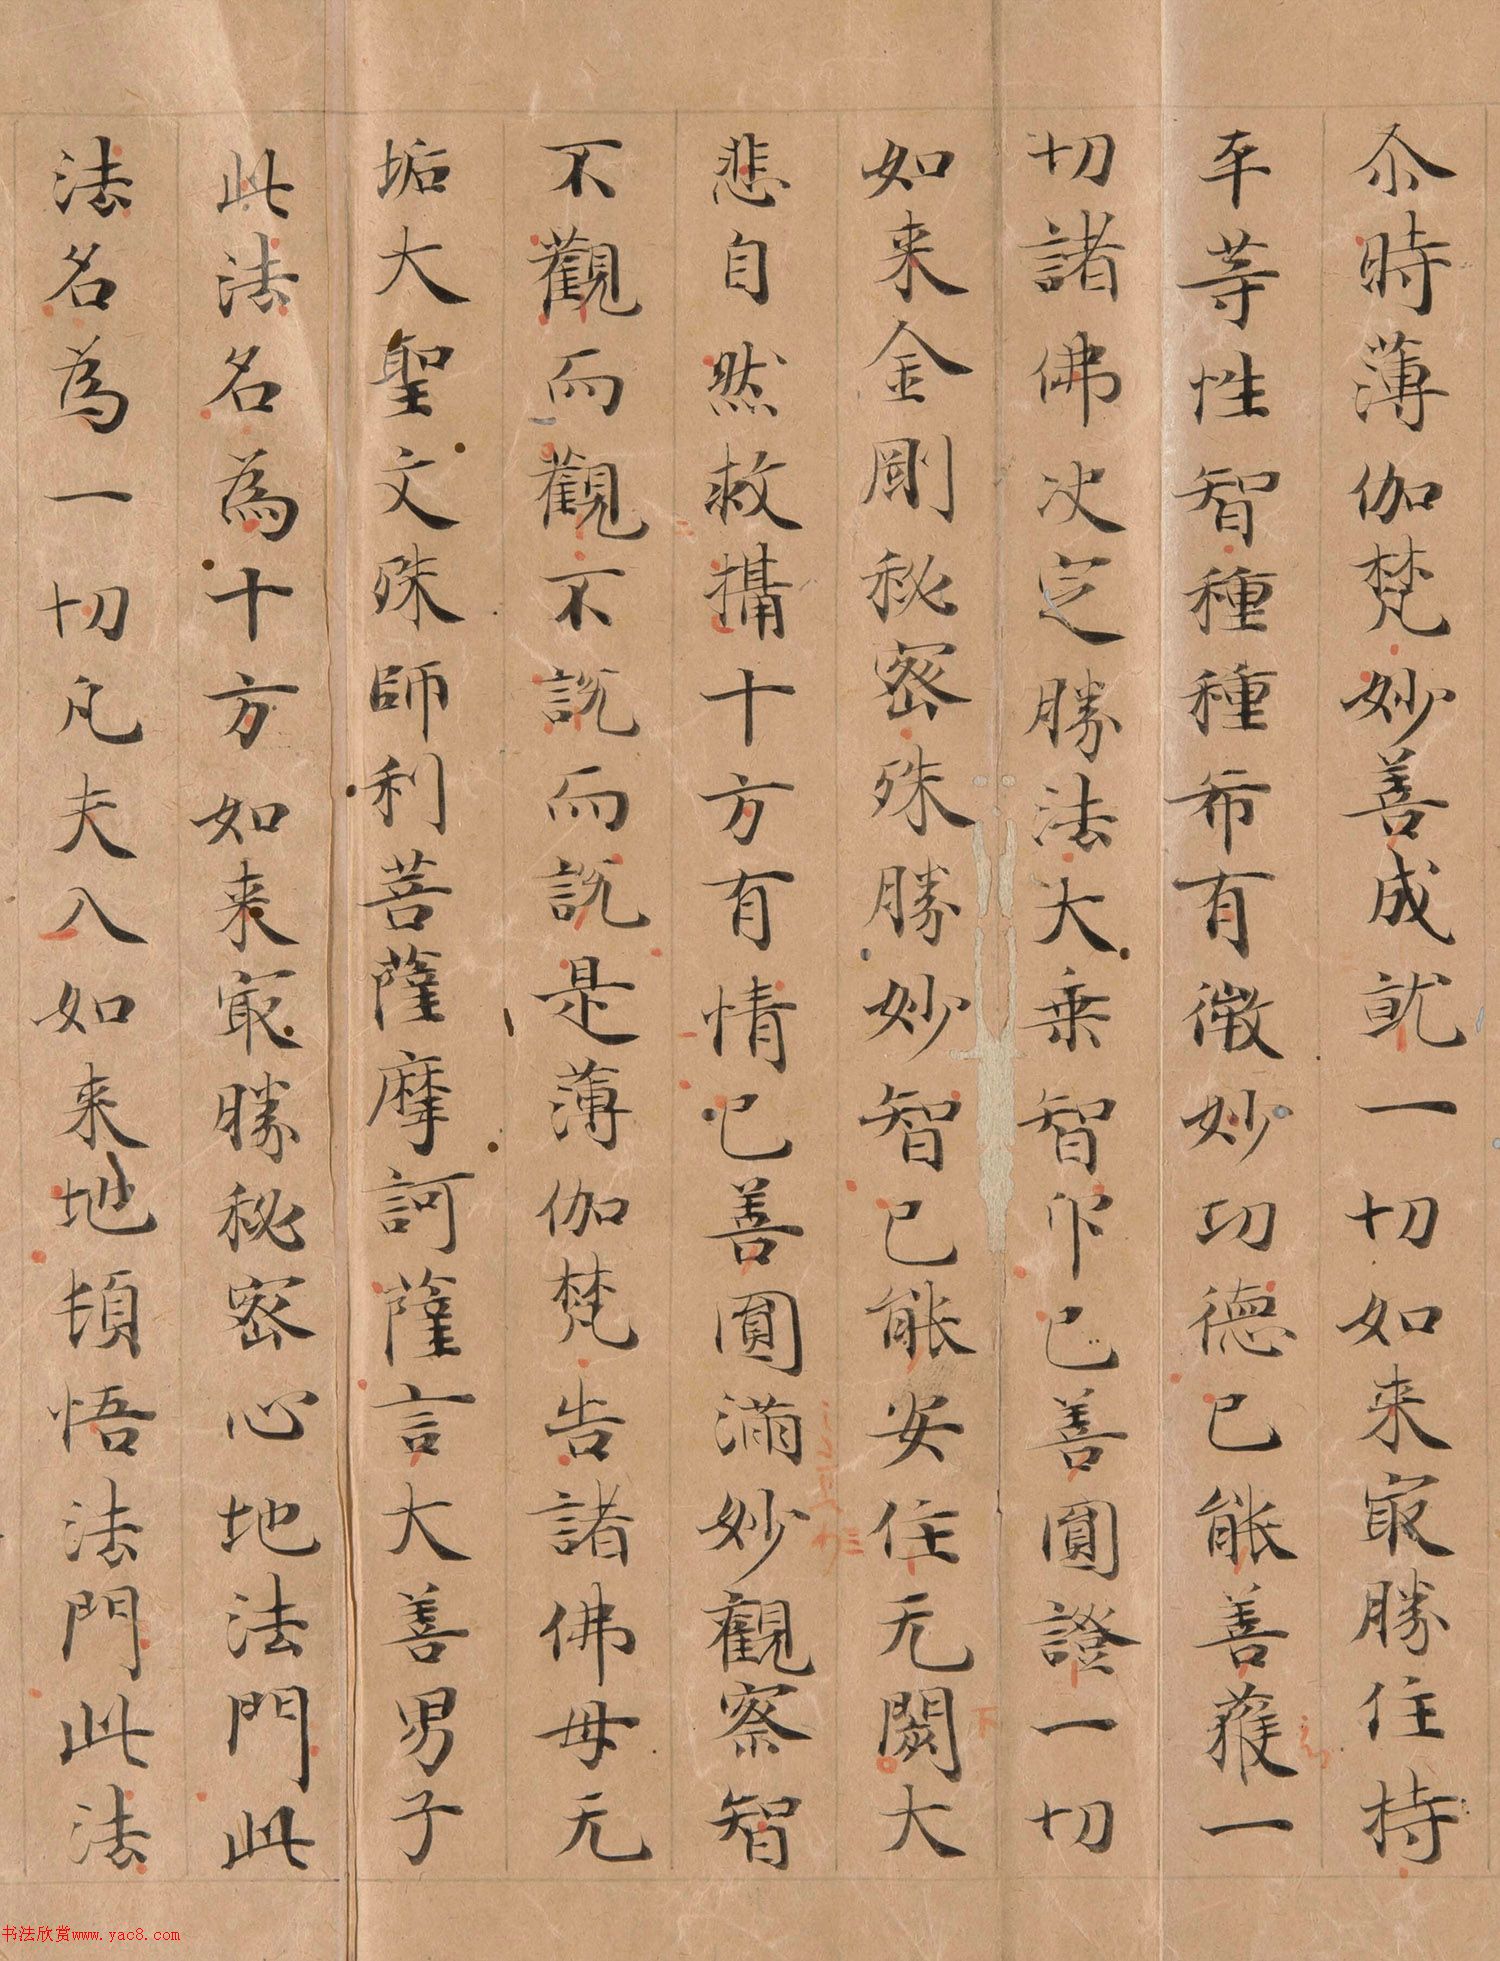 尒時薄伽梵妙善成就一切如来冣勝住持
平等性智種種希有微妙功德已能善獲一
切諸佛决定勝法大乗智印已善圓證一切
如来金剛秘密殊勝妙智已能安住无闕大
悲自然救攝十方有情已善圓滿妙觀察智
不觀而觀不說而說是薄伽梵告諸佛母无
垢大聖文殊師利菩薩摩訶薩言大善男子
此法名為十方如来冣勝秘密心地法門此
法名為一切凡夫入如来地頓悟法門此法
书法欣赏www.yac8.com